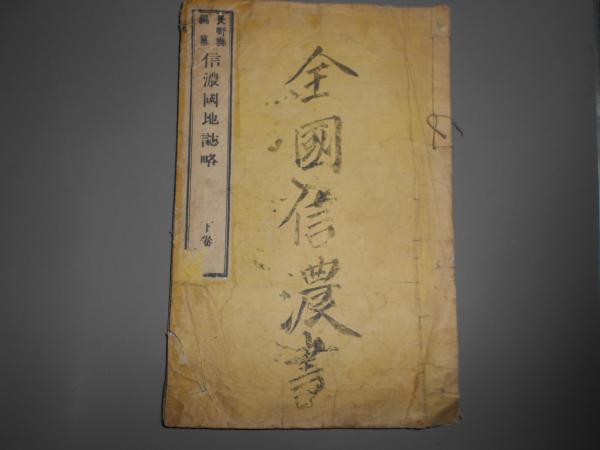 全國信濃書
長野縣
編纂
信濃國地誌略
下卷